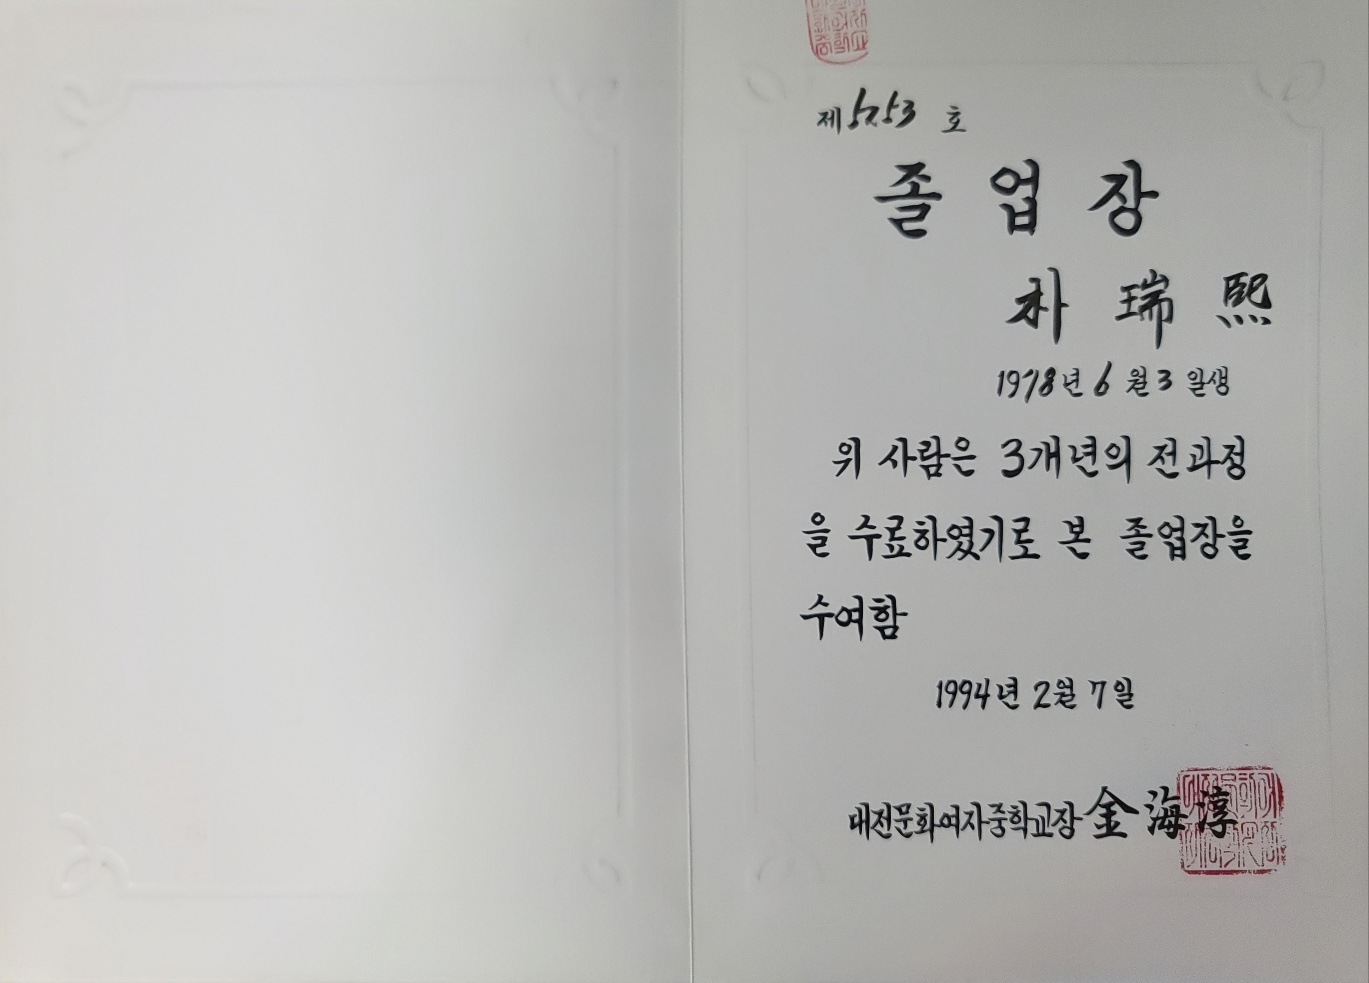 제5253 호
졸업장
朴瑞熙
1978년 6월 3일생
위 사람은 3개년의 전과정
을 수료하였기로 본 졸업장을
수여함
1994년 2월 7일
대전문화여자중학교장 金海淳